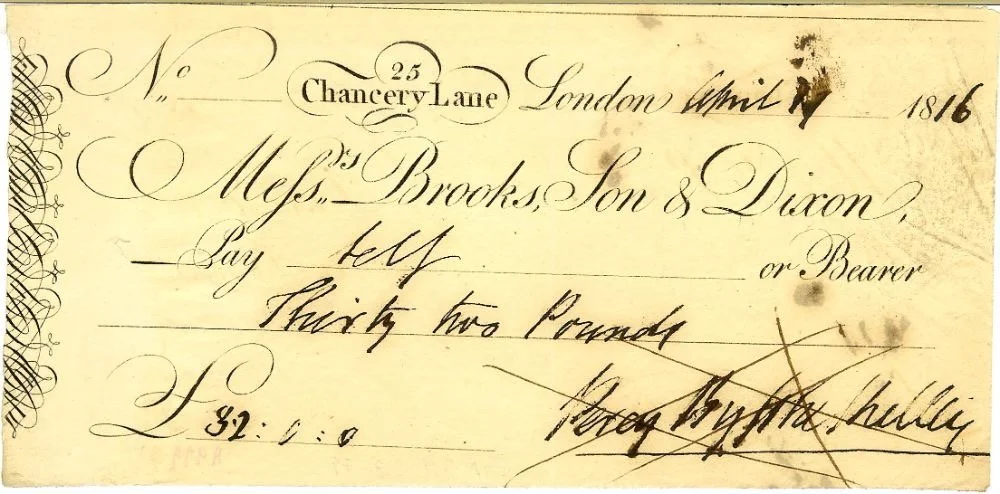 No 25 Chancery Lane London April 1816
Messrs Brooks, Son & Dixon,
Pay self or Bearer
Thirty two Pounds
£ 32:0:0 Percy Bysshe Shelley